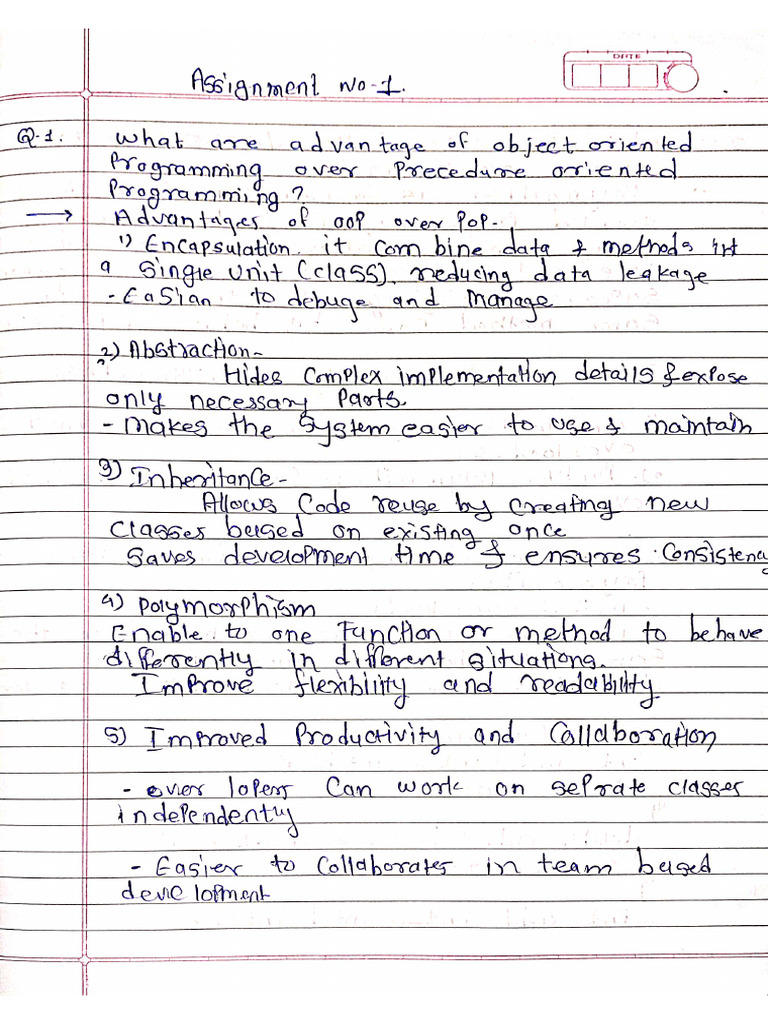 DATE
Assignment No-1.
Q.1. What are advantage of object oriented
Programming over Precedure oriented
Programming?
→ Advantages of OOP over POP-
1) Encapsulation it combine data & methods int
a single unit (class), reducing data leakage
- Easian to debuge and manage
2) Abstraction-
Hides complex implementation details & expose
only necessary parts.
- makes the system easier to use & maintain
3) Inheritance-
Allows Code reuse by creating new
classes based on existing once
Saves development time & ensures Consistency
4) Polymorphism
Enable to one Function or method to behave
differently in different situations.
Improve flexibility and readability
5) Improved Productivity and Collaboration
- lopers Can work on seprate classes
independenty
- Easier to Collaborates in team based
development